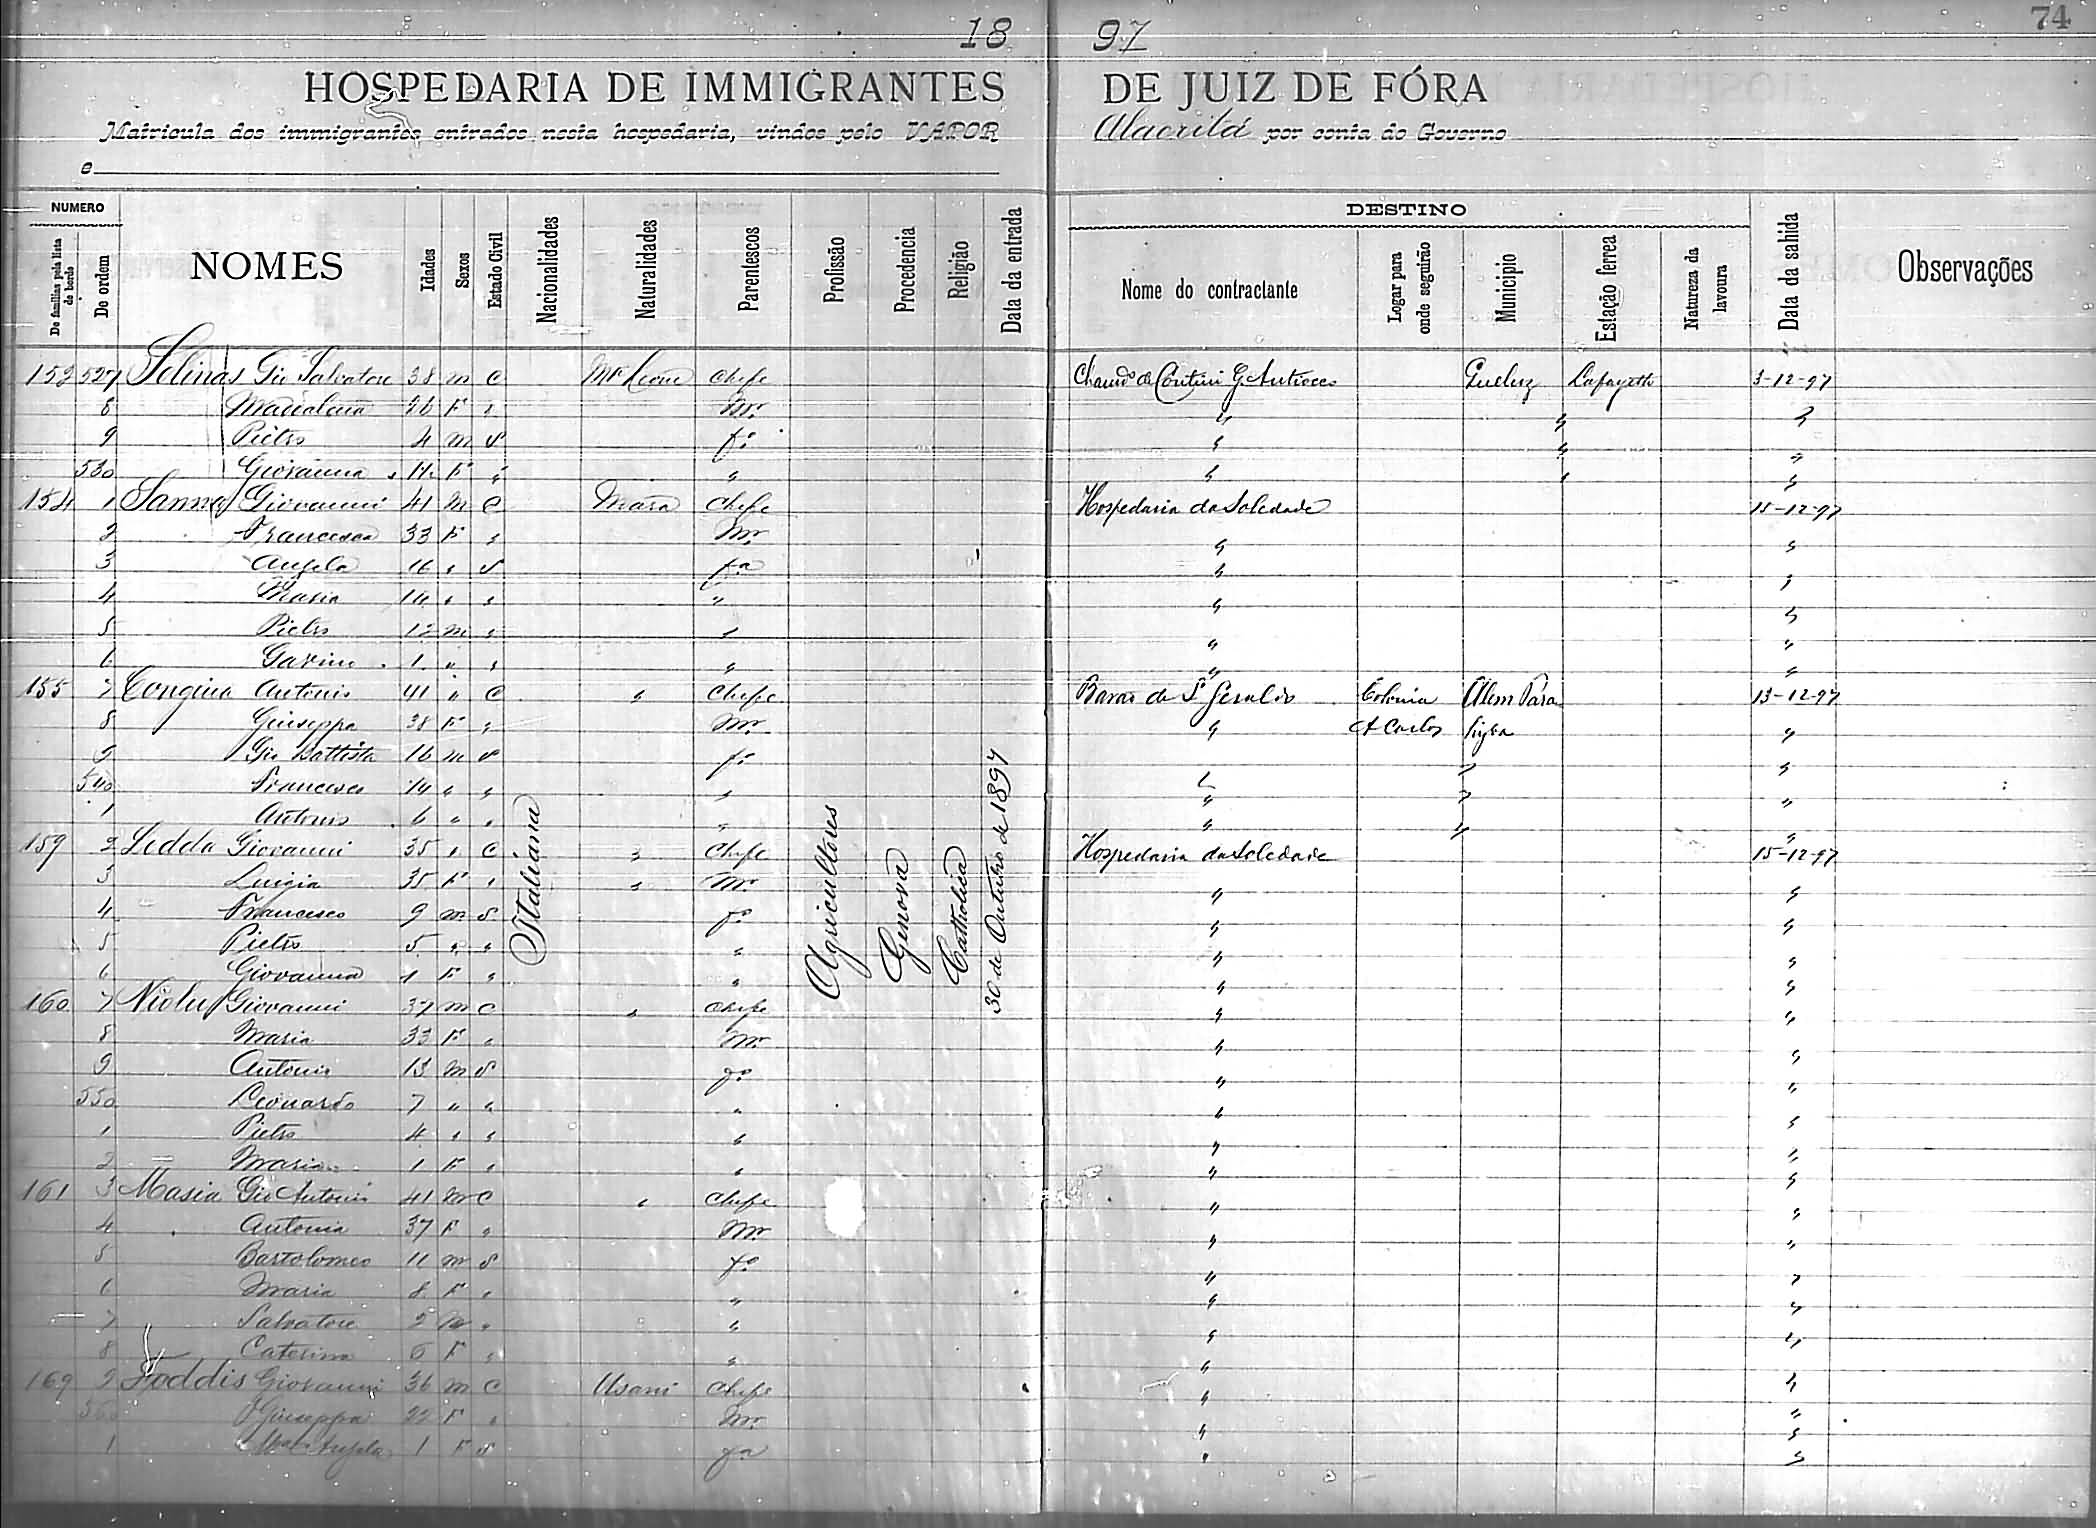 74
18 97
HOSPEDARIA DE IMMIGRANTES DE JUIZ DE FÓRA
Matricula dos immigrantes entrados nesta hospedaria, vindos pelo VAPOR Alacritá por conta do Governo
e
NUMERO DESTINO
De familias pela lista de bordo
Do ordem
NOMES
Idades
Sexos
Estado Civil
Nacionalidades
Naturalidades
Parentescos
Profissão
Procedencia
Religião
Data da entrada
Nome do contractante
Logar para onde seguirão
Municipio
Estação ferrea
Natureza da lavoura
Data da sahida
Observações
527 Solinas Gio Salvatore 38 m C Chefe Contini G. Lafayette 3-12-97
8 Maddalena 26 F " Mr. " " "
9 Pietro 4 m S fo. " " "
530 Giovanna F " " " " "
154 1 Sanna Giovanni 41 m C Mara Chefe Hospedaria da Soledade 15-12-97
2 Francesca 33 F " Mr. " "
3 Angela 16 " S fa " "
4 Maria 14 " " " " "
5 Pietro 12 m " " " "
6 Gavino 1 " " " " "
155 7 Congiu Antonio 41 " C " Chefe Barão de S. Geraldo Colonia Alem Para 13-12-97
8 Giuseppa 38 F " Mr. " Carlos "
9 Gio Battista 16 m S fo. " "
540 Francesco 14 " " " " " "
1 Antonio 6 " " " " " "
159 2 Ledda Giovanni 35 " C " Chefe Hospedaria da Soledade 15-12-97
3 Luigia 35 F " " Mr. " "
4 Francesco 9 m S fo. " "
5 Pietro 5 " " " " "
6 Giovanna 1 F " " " "
160 7 Niolu Giovanni 37 m C " Chefe " "
8 Maria 33 F " Mr. " "
9 Antonio 13 m S fo. " "
550 Leonardo 7 " " " " "
1 Pietro 4 " " " " "
2 Maria 1 F " " " "
161 3 Masia Gio Antonio 41 m C " Chefe " "
4 Antonia 37 F " Mr. " "
5 Bartolomeo 11 m S fo. " "
6 Maria 8 F " " " "
7 Salvatore 2 m " " " "
8 Caterina 6 F " " " "
169 9 Foddis Giovanni 36 m C Usani Chefe " "
560 Giuseppa 22 F " Mr. " "
1 Angela 1 F S fa " "
Italiana
Agricultores
Genova
Catholica
30 de Outubro de 1897